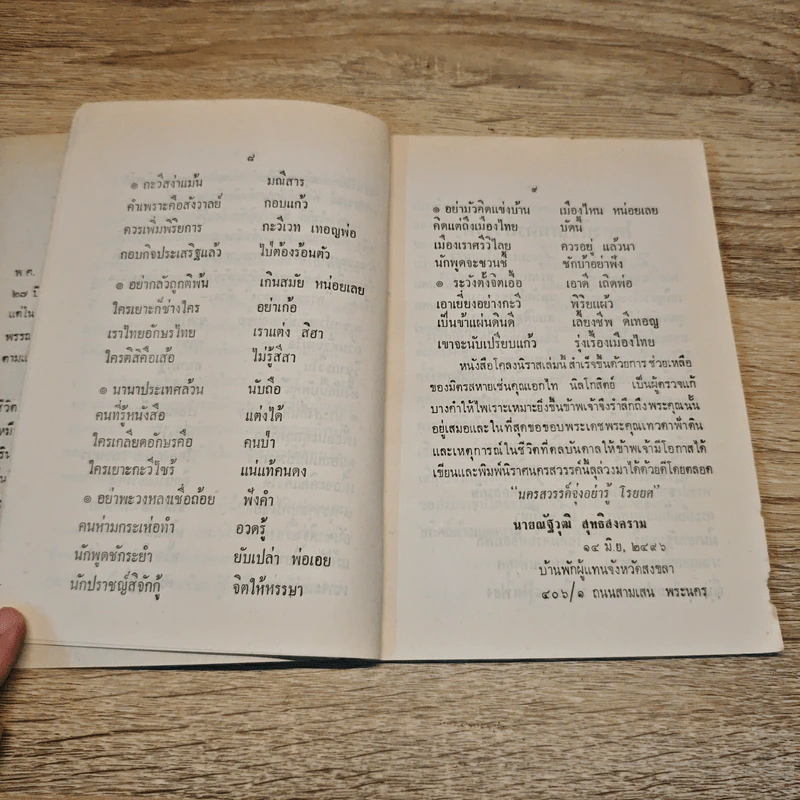 พ ศ.
๒๗ ปี
แต่ใน
พรรณ
ตามแ
ชีวิต
๘
๏ กะวีสง่าแม้น มณีสาร
คำเพราะคือสังวาลย์ กอบแก้ว
ควรเพิ่มพิริยการ กะวีเวท เทอญพ่อ
กอบกิจประเสริฐแล้ว ไป่ต้องร้อนตัว
๏ อย่ากลัวถูกติพ้น เกินสมัย หน่อยเลย
ใครเยาะก็ช่างใคร อย่าเก้อ
เราไทยอักษรไทย เราแต่ง สิฮา
ใครติสิคือเส้อ ไม่รู้สีสา
๏ นานาประเทศล้วน นับถือ
คนที่รู้หนังสือ แต่งได้
ใครเกลียดอักษรคือ คนป่า
ใครเยาะกะวีไซร้ แน่แท้คนดง
๏ อย่าพะวงหลงเชื่อถ้อย ฟังคำ
คนห่ามกระเห่อทำ อวดรู้
นักพูดชักระยำ ยับเปล่า พ่อเอย
นักปราชญ์สิจักกู้ จิตให้หรรษา
๙
๏ อย่ามัวคิดแข่งบ้าน เมืองไหน หน่อยเลย
คิดแต่ถึงเมืองไทย บัดนี้
เมืองเราศรีวิไลย ควรอยู่ แล้วนา
นักพูดจะชวนชี้ ชักบ้าอย่าฟัง
๏ ระวังตั้งจิตเอื้อ เอาดี เถิดพ่อ
เอาเยี่ยงอย่างกะวี พิริยแผ้ว
เป็นข้าแผ่นดินดี เลี้ยงชีพ ดีเทอญ
เขาจะนับเปรียบแก้ว รุ่งเรืองเมืองไทย
หนังสือโคลงนิราสเล่มนี้ สำเร็จขึ้นด้วยการ ช่วยเหลือ
ของมิตรสหายเช่นคุณเอกไท นิลโกสีตย์ เป็นผู้ตรวจแก้
บางคำให้ไพเราะเหมาะยิ่งขึ้นข้าพเจ้าจึงรำลึกถึงพระคุณนั้น
อยู่เสมอและในที่สุดขอขอบพระเดชพระคุณเทวดาฟ้าดิน
และเหตุการณ์ในชีวิตที่ดลบันดาลให้ข้าพเจ้ามีโอกาสได้
เขียนและพิมพ์นิราศนครสวรรค์นี้ลุล่วงมาได้ด้วยดีโดยตลอด
“นครสวรรค์จุ่งอย่ารู้ โรยยศ”
นายณัฐวุฒิ สุทธิสงคราม
๑๔ มิย, ๒๔๙๖
บ้านพักผู้แทนจังหวัดสงขลา
๔๐๖/๑ ถนนสามเสน พระนคร